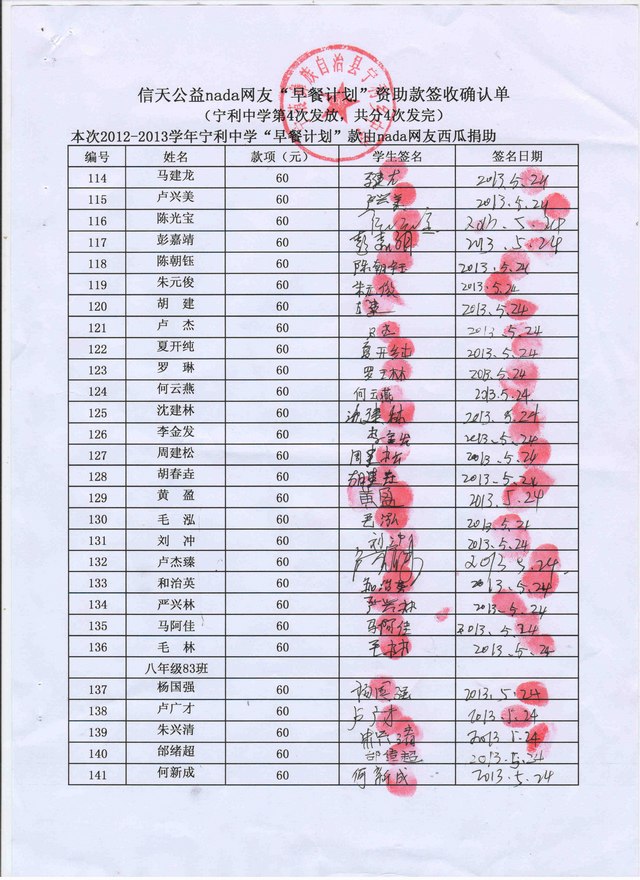 族自治县宁
信天公益nada网友“早餐计划”资助款签收确认单
(宁利中学第4次发放，共分4次发完)
本次2012-2013学年宁利中学“早餐计划”款由nada网友西瓜捐助
编号 姓名 款项（元） 学生签名 签名日期
114 马建龙 60 2013.5.24
115 卢兴美 60 卢兴美 2013.5.24
116 陈光宝 60 2013.5.24
117 彭嘉靖 60 彭嘉靖 2013.5.24
118 陈朝钰 60 陈朝钰 2013.5.24
119 朱元俊 60 朱元俊 2013.5.24
120 胡 建 60 2013.5.24
121 卢 杰 60 2013.5.24
122 夏开纯 60 夏开纯 2013.5.24
123 罗 琳 60 罗琳 2013.5.24
124 何云燕 60 何云燕 2013.5.24
125 沈建林 60 沈建林 2013.5.24
126 李金发 60 李金发 2013.5.24
127 周建松 60 周建松 2013.5.24
128 胡春垚 60 2013.5.24
129 黄 盈 60 黄盈 2013.5.24
130 毛 泓 60 毛泓 2013.5.24
131 刘 冲 60 刘冲 2013.5.24
132 卢杰臻 60 2013.5.24
133 和治英 60 和治英 2013.5.24
134 严兴林 60 严兴林 2013.5.24
135 马阿佳 60 马阿佳 2013.5.24
136 毛 林 60 毛林 2013.5.24
八年级83班
137 杨国强 60 杨国强 2013.5.24
138 卢广才 60 卢广才 2013.5.24
139 朱兴清 60 朱兴清 2013.5.24
140 邰绪超 60 邰绪超 2013.5.24
141 何新成 60 何新成 2013.5.24